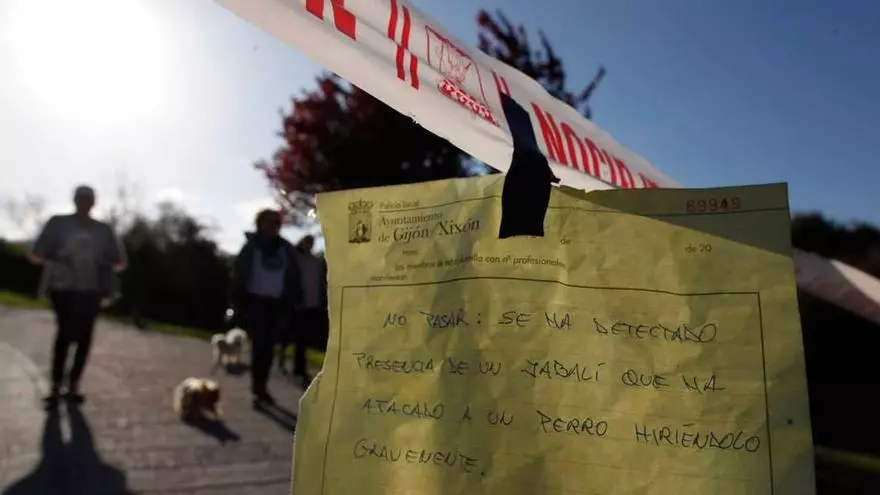 NOCIR
Policía Local
69949
Ayuntamiento
de Gijón/Xixón
de
de 20
Los miembros de esta patrulla con nº profesionales
manifiestan:
NO PASAR: SE HA DETECTADO
PRESENCIA DE UN JABALÍ QUE HA
ATACADO A UN PERRO HIRIÉNDOLO
GRAVEMENTE.